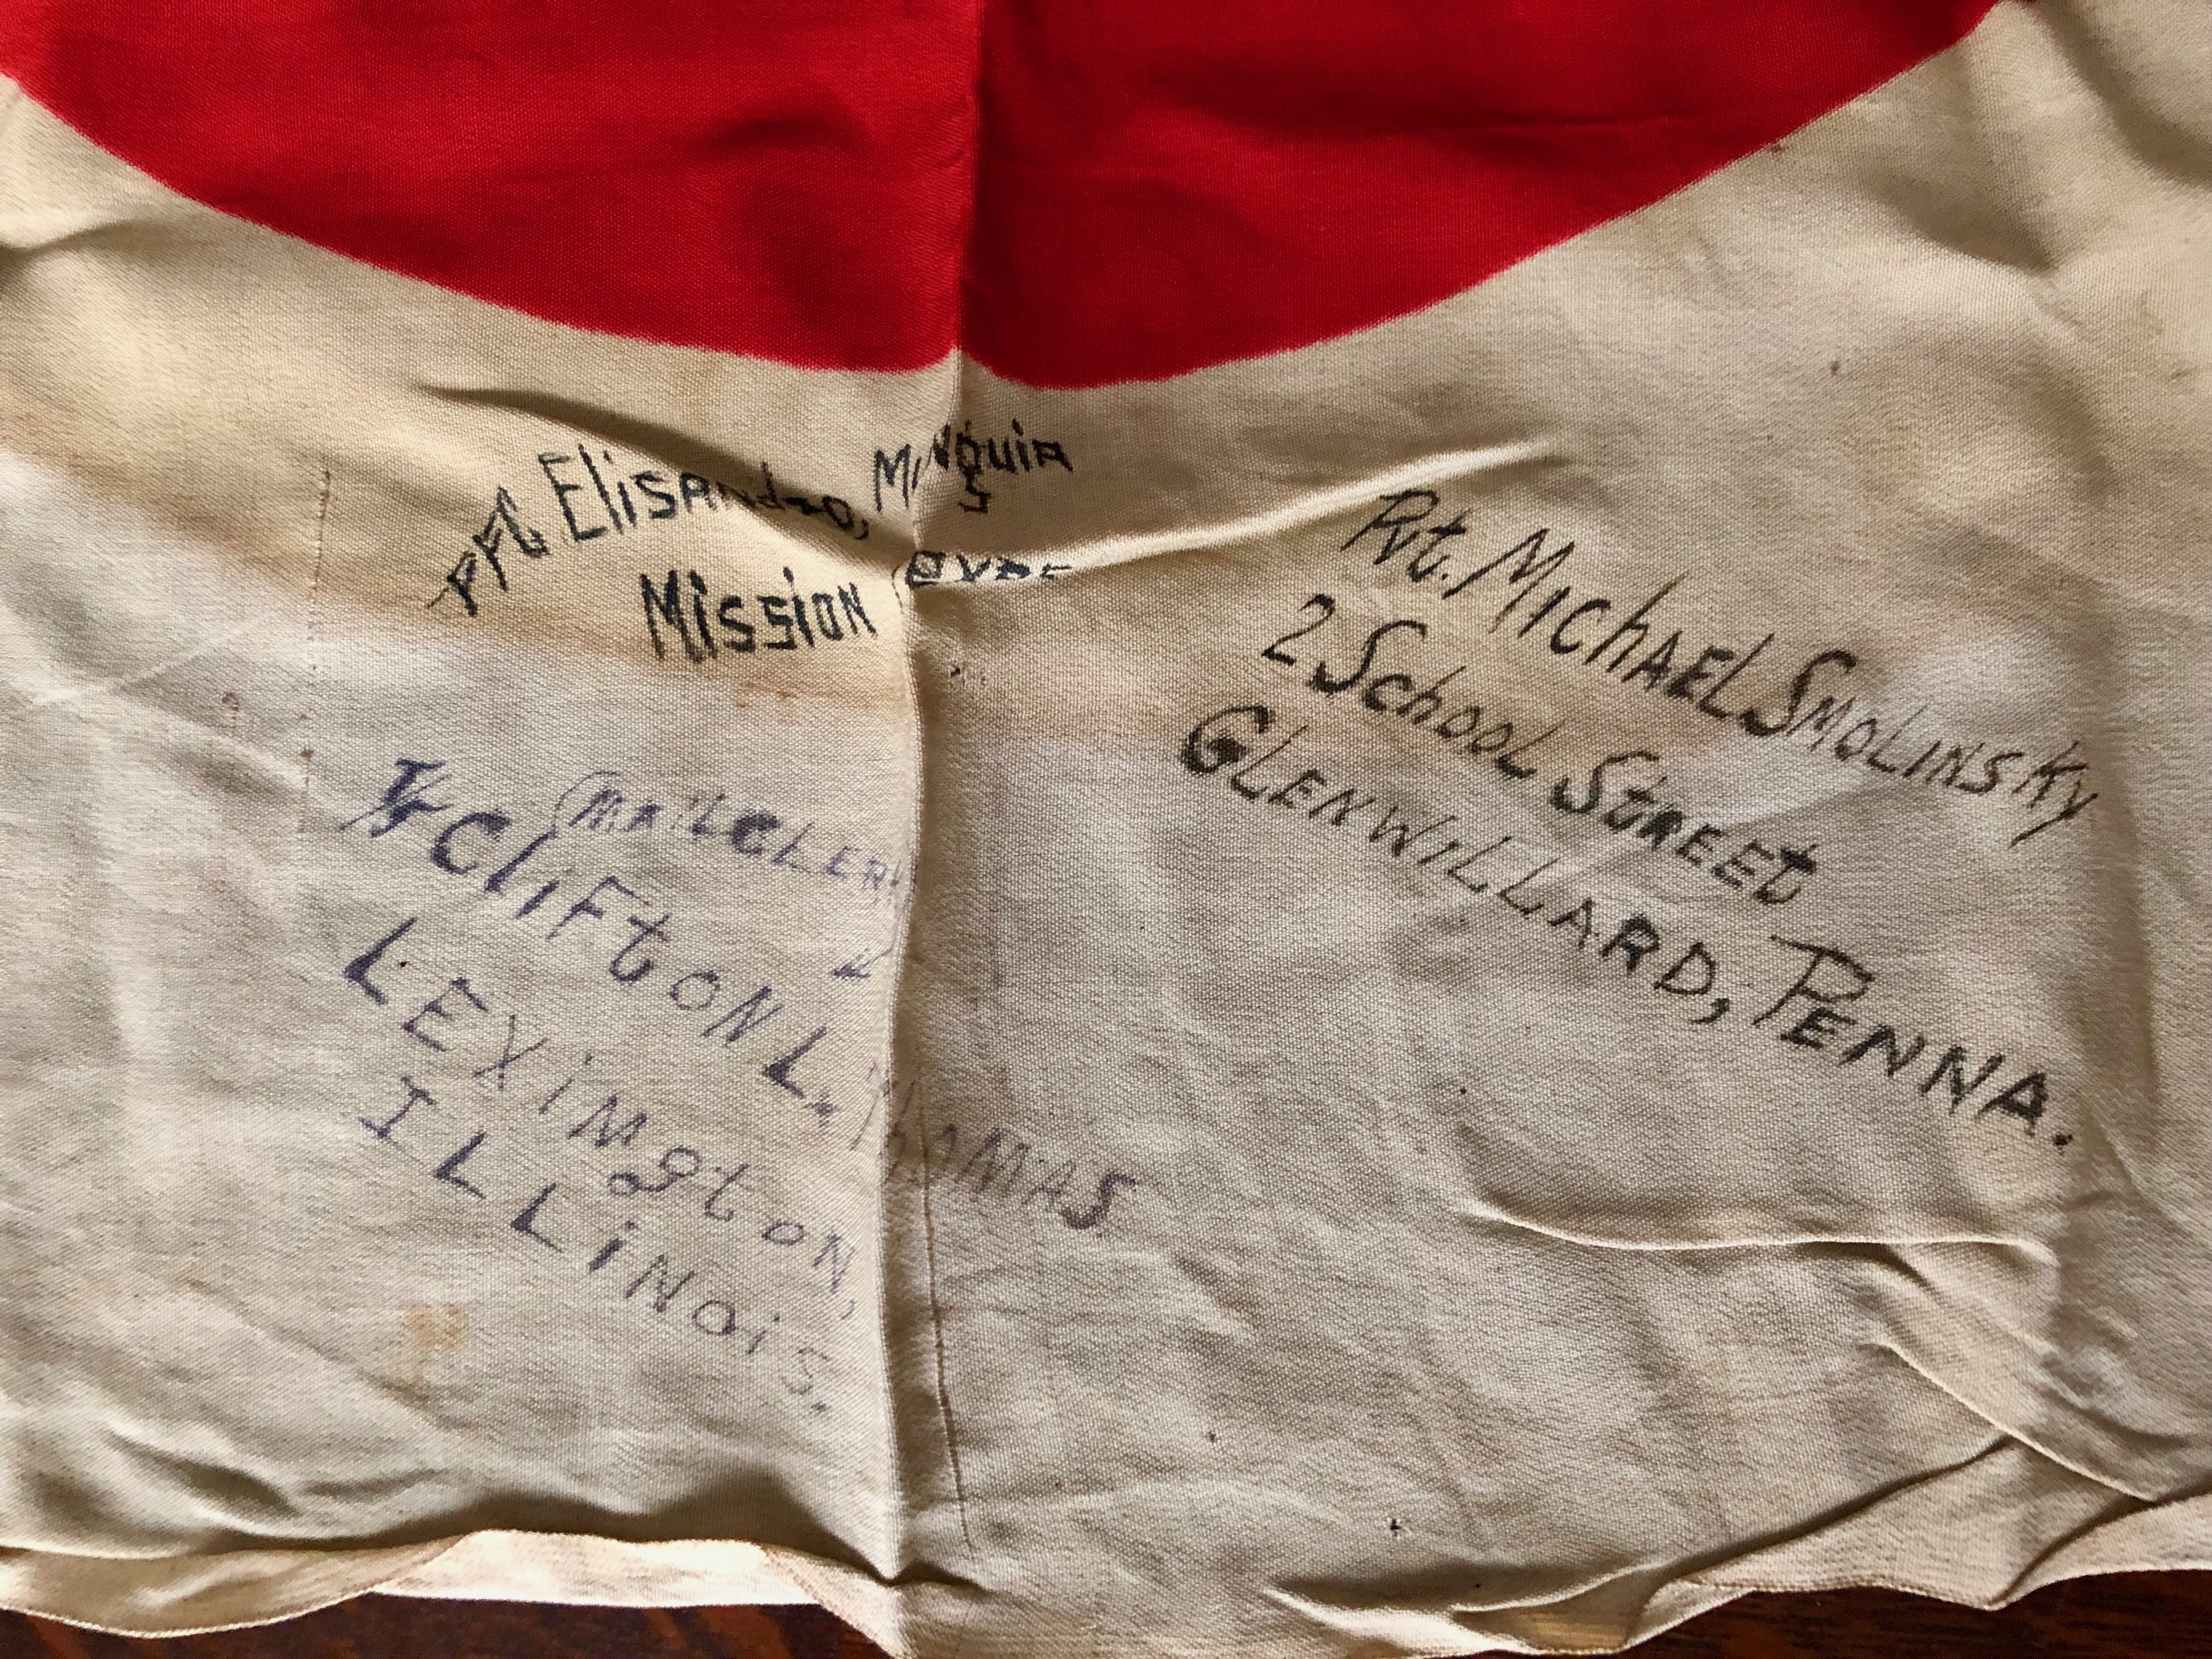 PFC Elisandro, Munguia
Mission
Pvt. Michael Smolinsky
2 School Street
Glenwillard, Penna.
(Mail Clerk
T/5 Clifton L. Thomas
Leximgton,
Illinois.